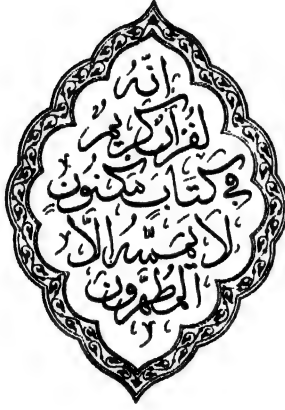 انّه
لقرآن كريم
في كتابٍ مكنونٍ
لا يمسّه الّا
المطهّرون